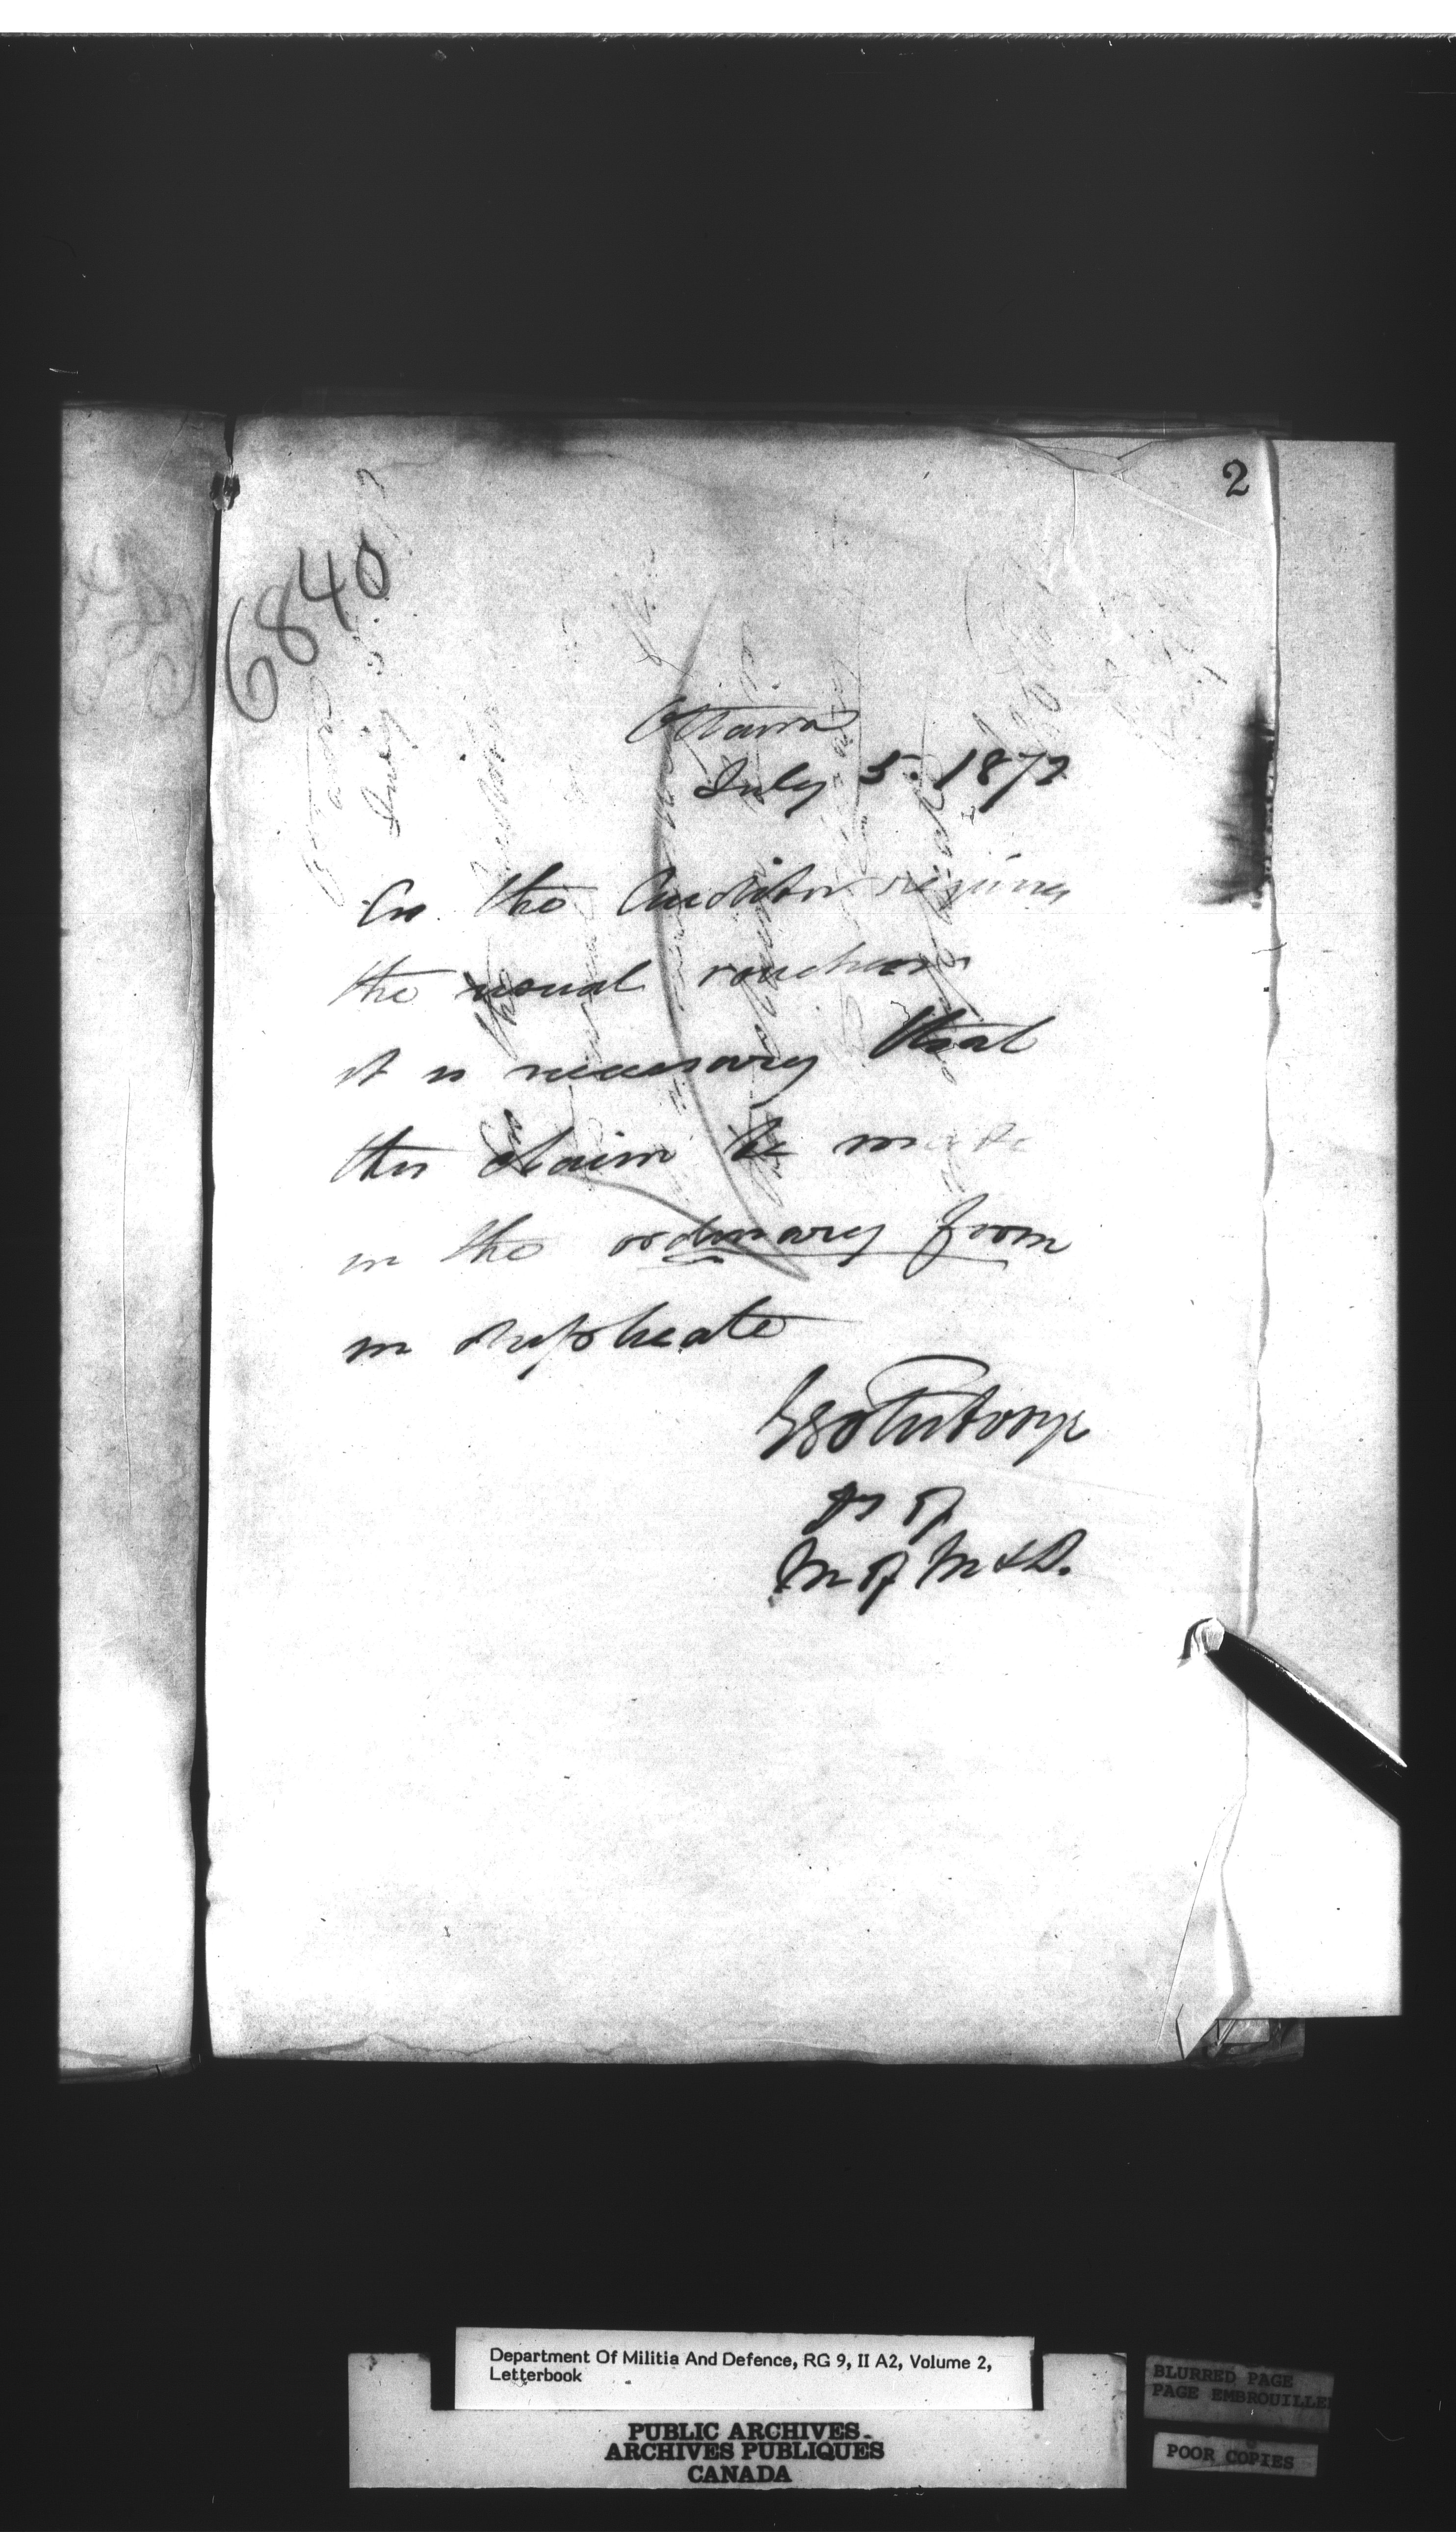 2
6840
Ottawa
July 5. 1872
As the Auditor requires
the usual vouchers
it is necessary that
this claim be made
in the ordinary form
in duplicate
M of M & D.
Department Of Militia And Defence, RG 9, II A2, Volume 2,
Letterbook
PUBLIC ARCHIVES
ARCHIVES PUBLIQUES
CANADA
BLURRED PAGE
PAGE EMBROUILLEE
POOR COPIES